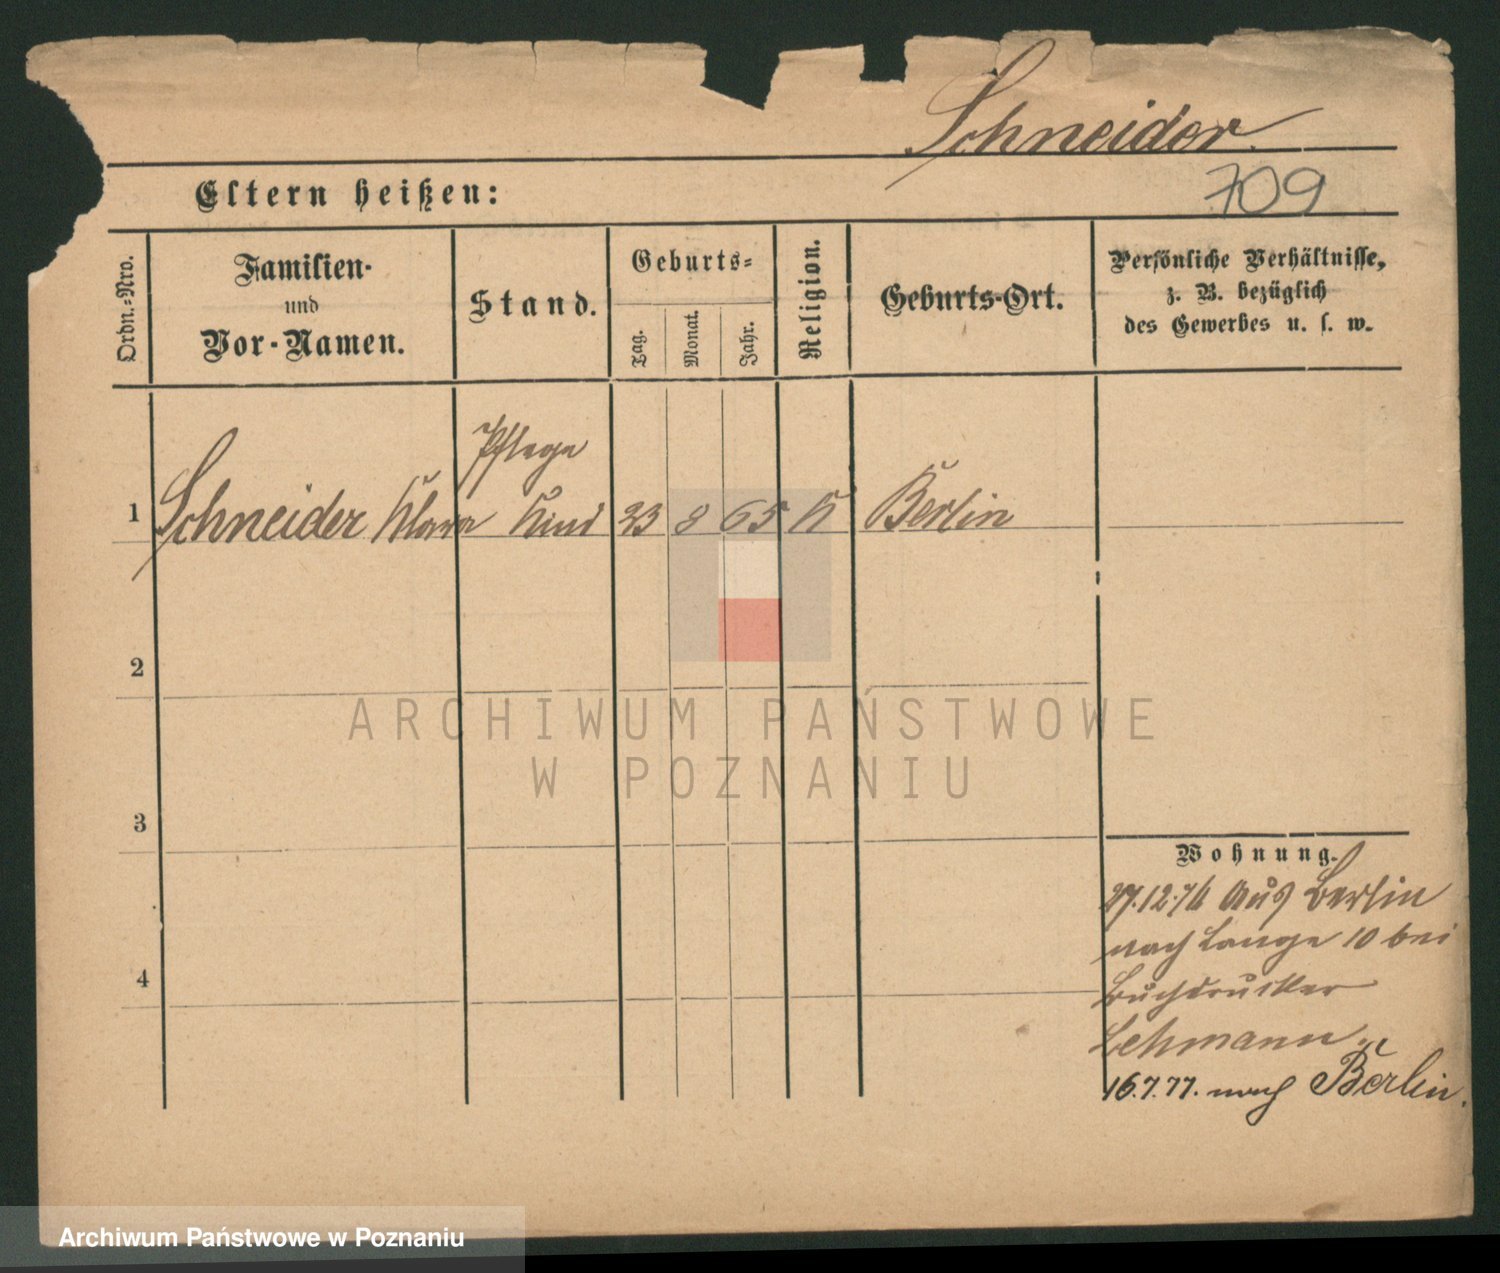 Schneider
709
Eltern heißen:
Ordn.-Nro.
Familien-
und
Vor-Namen.
Stand.
Geburts-
Tag.
Monat.
Jahr.
Religion.
Geburts-Ort.
Persönliche Verhältnisse,
z. B. bezüglich
des Gewerbes u. s. w.
Pflege
1 Schneider Klara Kind 23 8 65 K Berlin
2
3
4
Wohnung.
27.12.76 Aus Berlin
nach Lange 10 bei
Buchdrucker
Lehmann.
16.7.77. nach Berlin.
ARCHIWUM PAŃSTWOWE
W POZNANIU
Archiwum Państwowe w Poznaniu